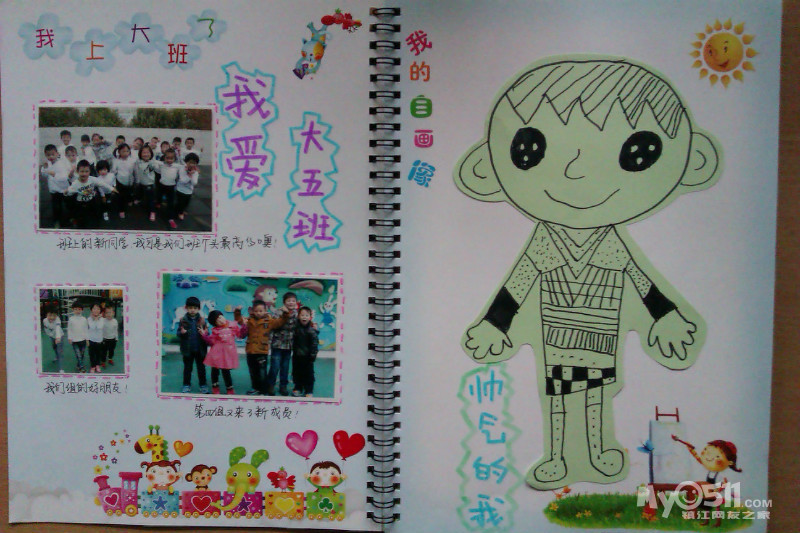 我上大班了
我爱
大五班
班上的新同学 我可是我们班个头最高的噢！
我们组的好朋友！
第四组又来了新成员！
我的自画像
帅气的我
my0511.COM
镇江网友之家